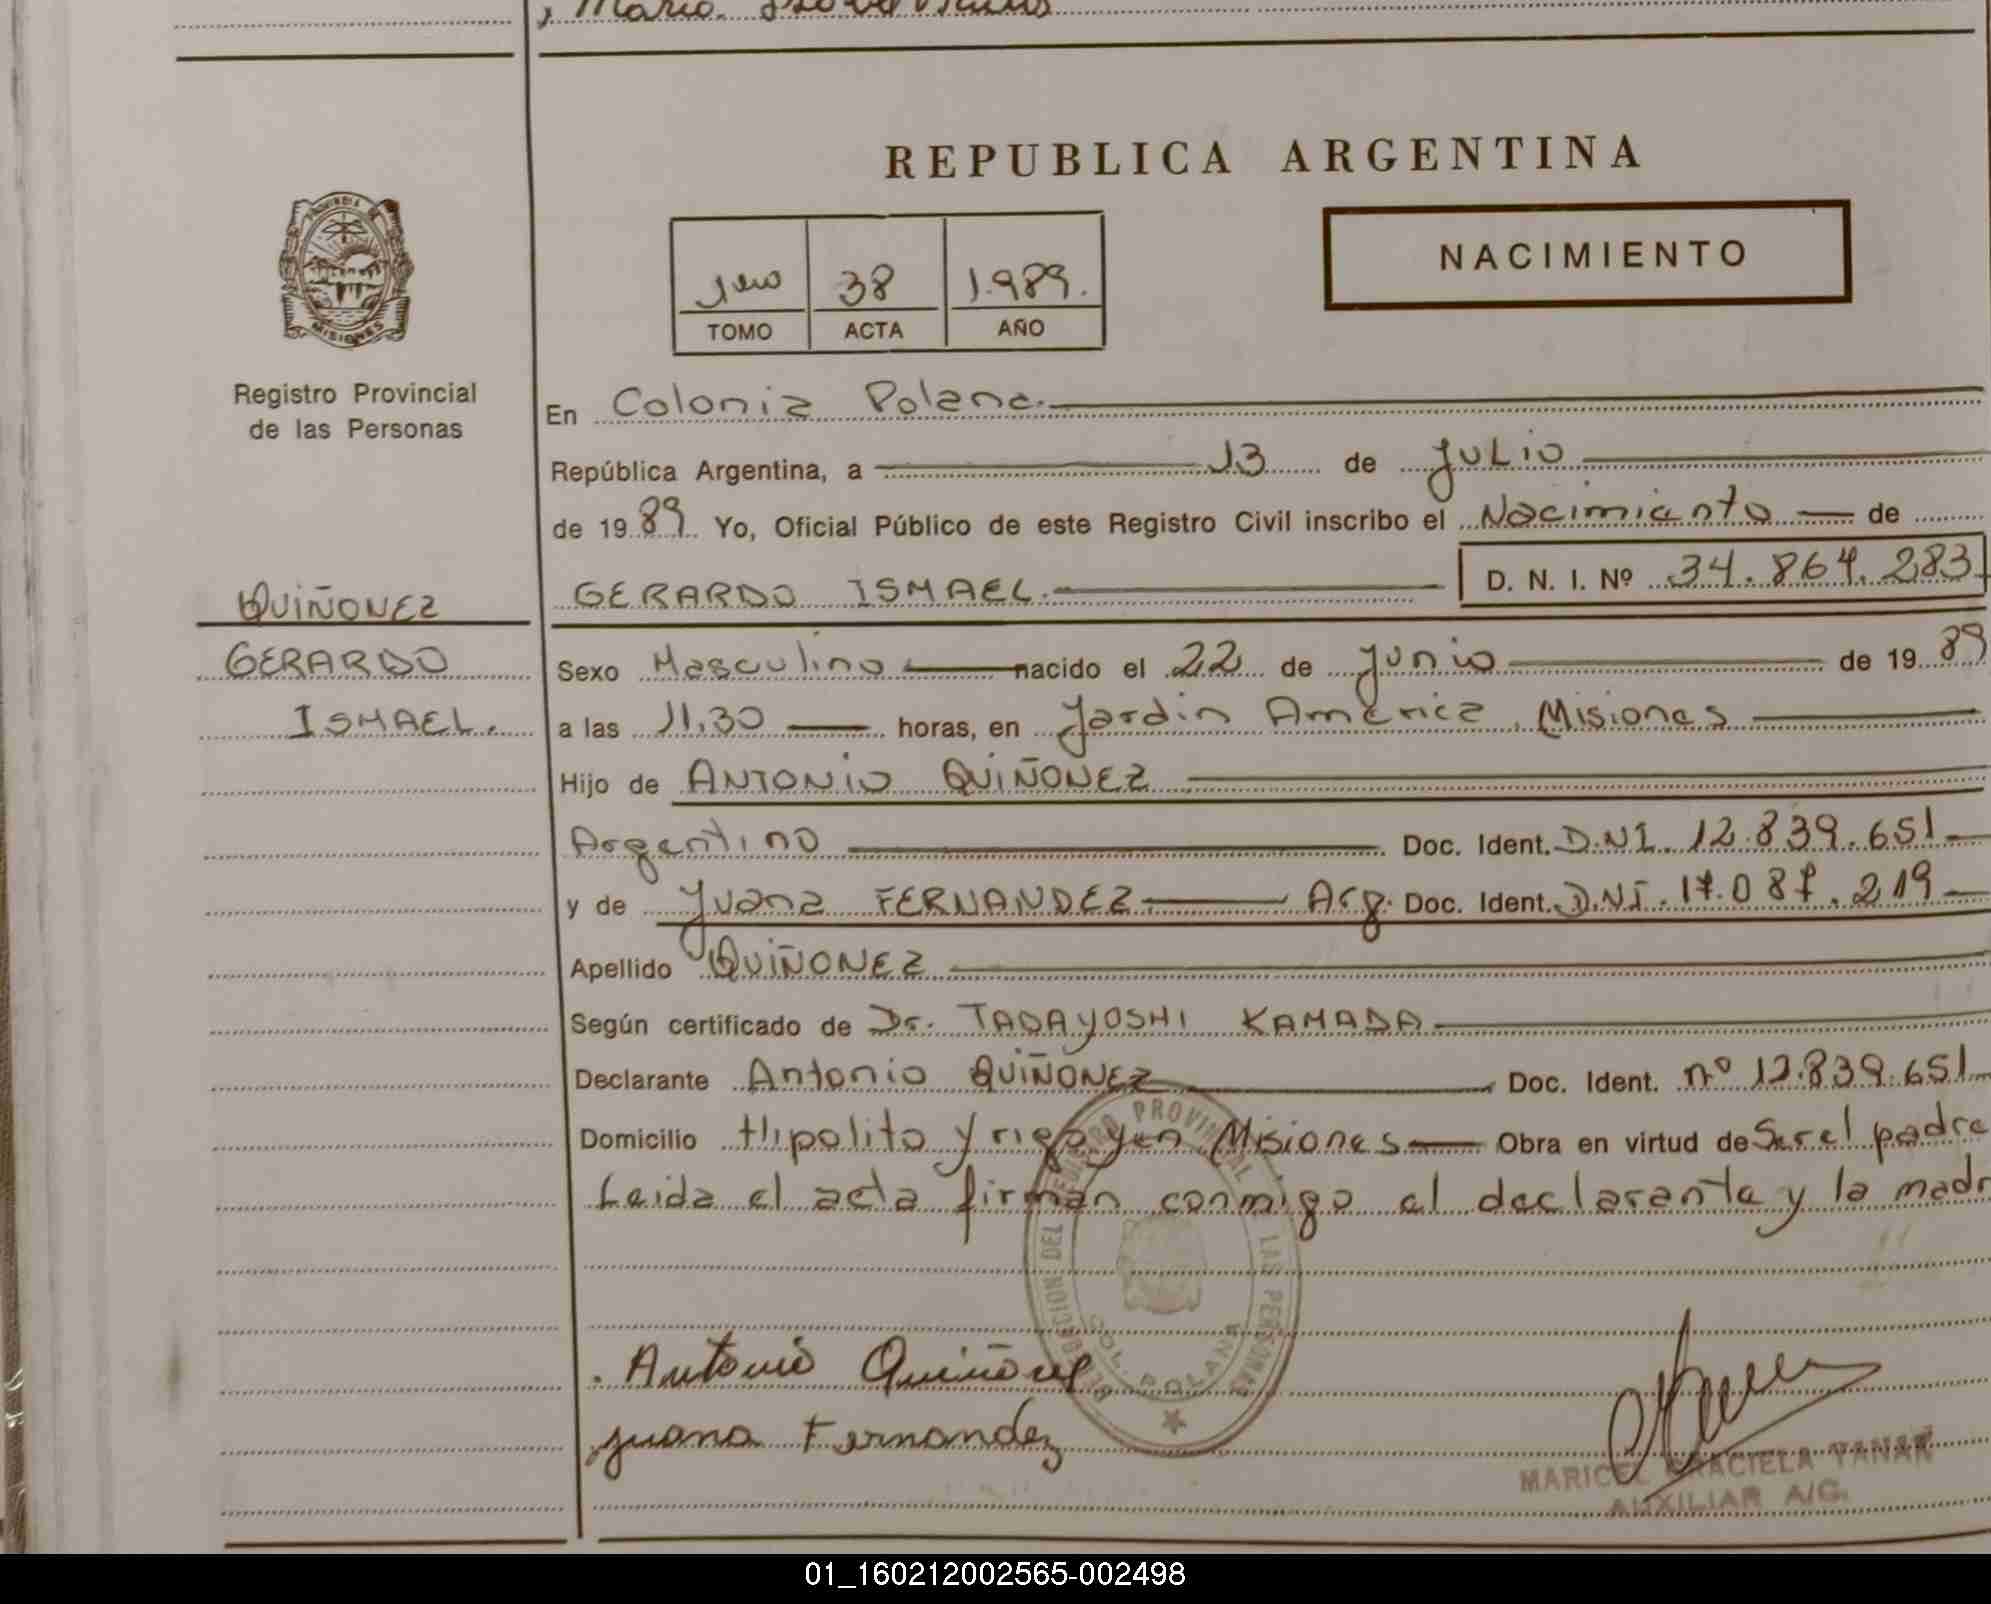 REPUBLICA ARGENTINA
NACIMIENTO
1ero 38 1.989.
TOMO ACTA AÑO
PROVINCIA DE
MISIONES
Registro Provincial
de las Personas
QUIÑONEZ
GERARDO
ISMAEL.
En Colonia Polana.
República Argentina, a 13 de Julio
de 19 89 Yo, Oficial Público de este Registro Civil inscribo el Nacimiento de
GERARDO ISMAEL. D. N. I. Nº 34.864.283
Sexo Masculino nacido el 22 de Junio de 19 89
a las 11,30 horas, en Jardín América, Misiones
Hijo de ANTONIO QUIÑONEZ
Argentino Doc. Ident. D.N.I. 12.839.651
y de Juana FERNANDEZ Arg. Doc. Ident. D.N.I. 17.087.219
Apellido QUIÑONEZ
Según certificado de Dr. TADAYOSHI KAMADA
Declarante Antonio QUIÑONEZ Doc. Ident. nº 12.839.651
Domicilio Hipolito Yrigoyen Misiones Obra en virtud de Ser el padre
Leida el acta firman conmigo el declarante y la madr
DELEGACION DEL REGISTRO PROVINCIAL DE LAS PERSONAS
COL. POLANA
Antonio Quiñonez
Juana Fernandez
MARICEL GRACIELA YANAK
AUXILIAR A/C.
01_160212002565-002498